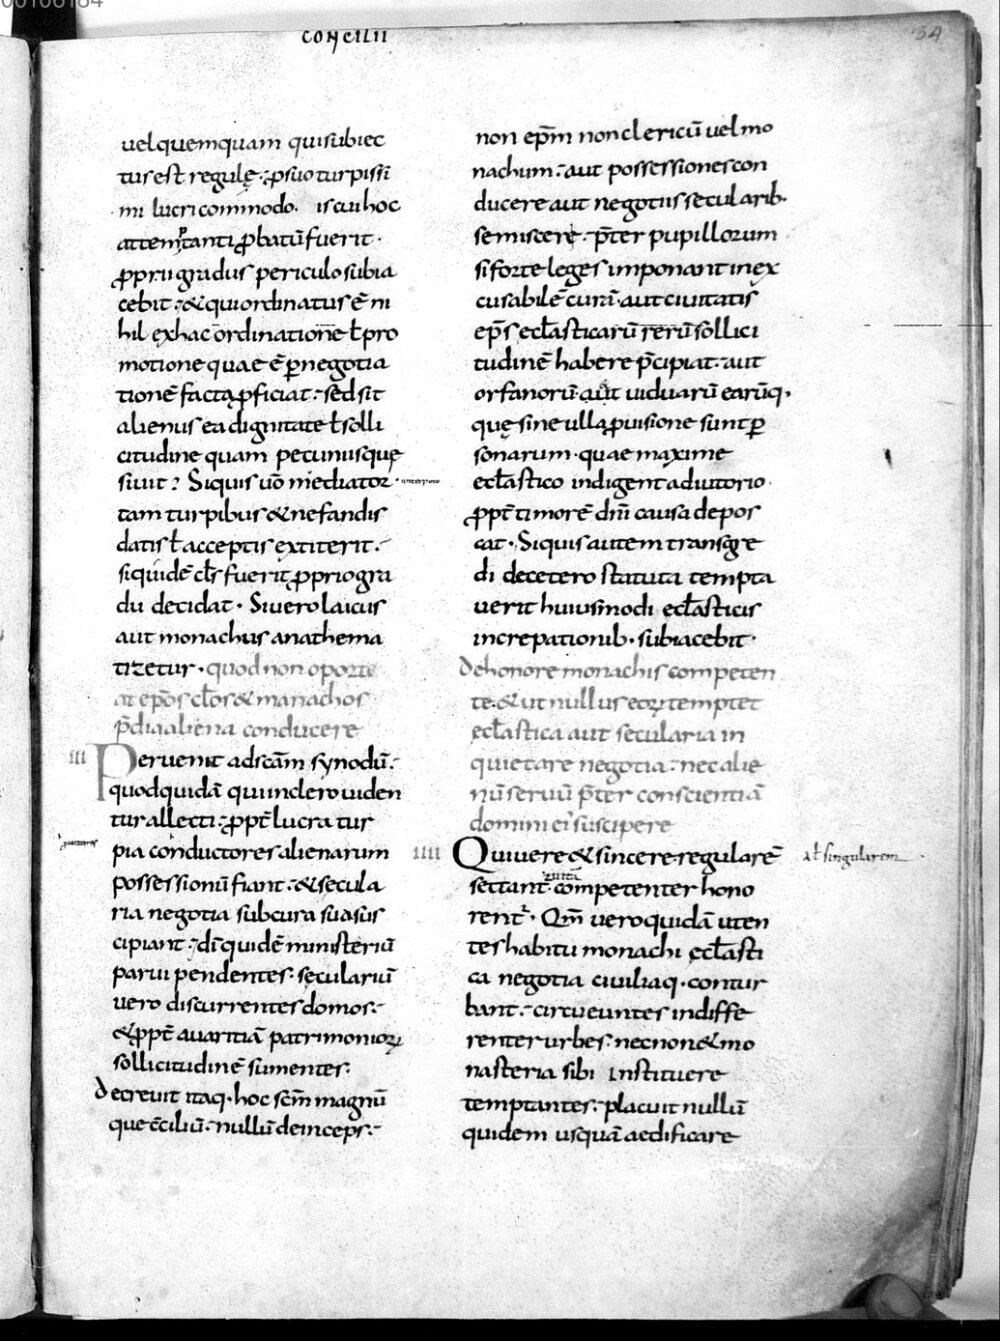 00106184
concilii
34
uel quemquam qui subiec
tus est regulę. p̱ suo turpissi
mi lucri commodo. is cui hoc
attemptanti ꝓbatū fuerit.
ꝓprii gradus periculo subia
cebit. & qui ordinatus ē ni
hil ex hac ordinatione ł pro
motione quae ē ꝑ negotia
tionē facta ꝓficiat. sed sit
alienus ea dignitate ł solli
citudine quam pecuniis que
siuit. Si quis uō mediator
tam turpibus & nefandis
datis ł acceptis extiterit.
siquidē cłs fuerit ꝓprio gra
du decidat. Si uero laicus
aut monachus anathema
tizetur. quod non oporte
at ep̄os cłos & monachos
p̄dia aliena conducere
III Peruenit ad scām synodū.
quod quidā qui in clero uiden
tur allecti. ꝓpt̄ lucra tur
pia conductores alienarum
possessionū fiant. & secula
ria negotia sub cura sua sus
cipiant. dī quidē ministeriū
parui pendentes. seculariū
uero discurrentes domos.
& ꝓpt̄ auaritiā patrimonioꝝ
sollicitudinē sumentes.
decreuit itaq. hoc scm̄ magnū
que cc̄iliū. nullū deinceps.
non ep̄m non clericū uel mo
nachum. aut possessiones con
ducere aut negotiis secularib.
se miscere. p̄ter pupillorum
si forte leges imponant inex
cusabilē curā. aut ciuitatis
ep̄s ecłasticarū rerū sollici
tudinē habere p̄cipiat. aut
orfanorū. aut uiduarū earūq.
quę sine ulla ꝓuisione sunt ꝑ
sonarum. quae maxime
ecłastico indigent adiutorio.
ꝓpt̄ timorē dn̄i causa depos
cat. Si quis autem transgre
di decetero statuta tempta
uerit huiusmodi ecłasticis
increpationib. subiacebit.
de honore monachis competen
te. & ut nullus eoꝝ temptet
ecłastica aut secularia in
quietare negotia. nec alie
nū seruū p̄ter conscientiā
domini ei suscipere
IIII Qui uere & sincere regularē ał singularem
sectant competenter hono
rent. Qm̄ uero quidā uten
tes habitu monachi ecłasti
ca negotia ciuiliaq. contur
bant. circueuntes indiffe
renter urbes. necnon & mo
nasteria sibi instituere
temptantes. placuit nullū
quidem usquā aedificare